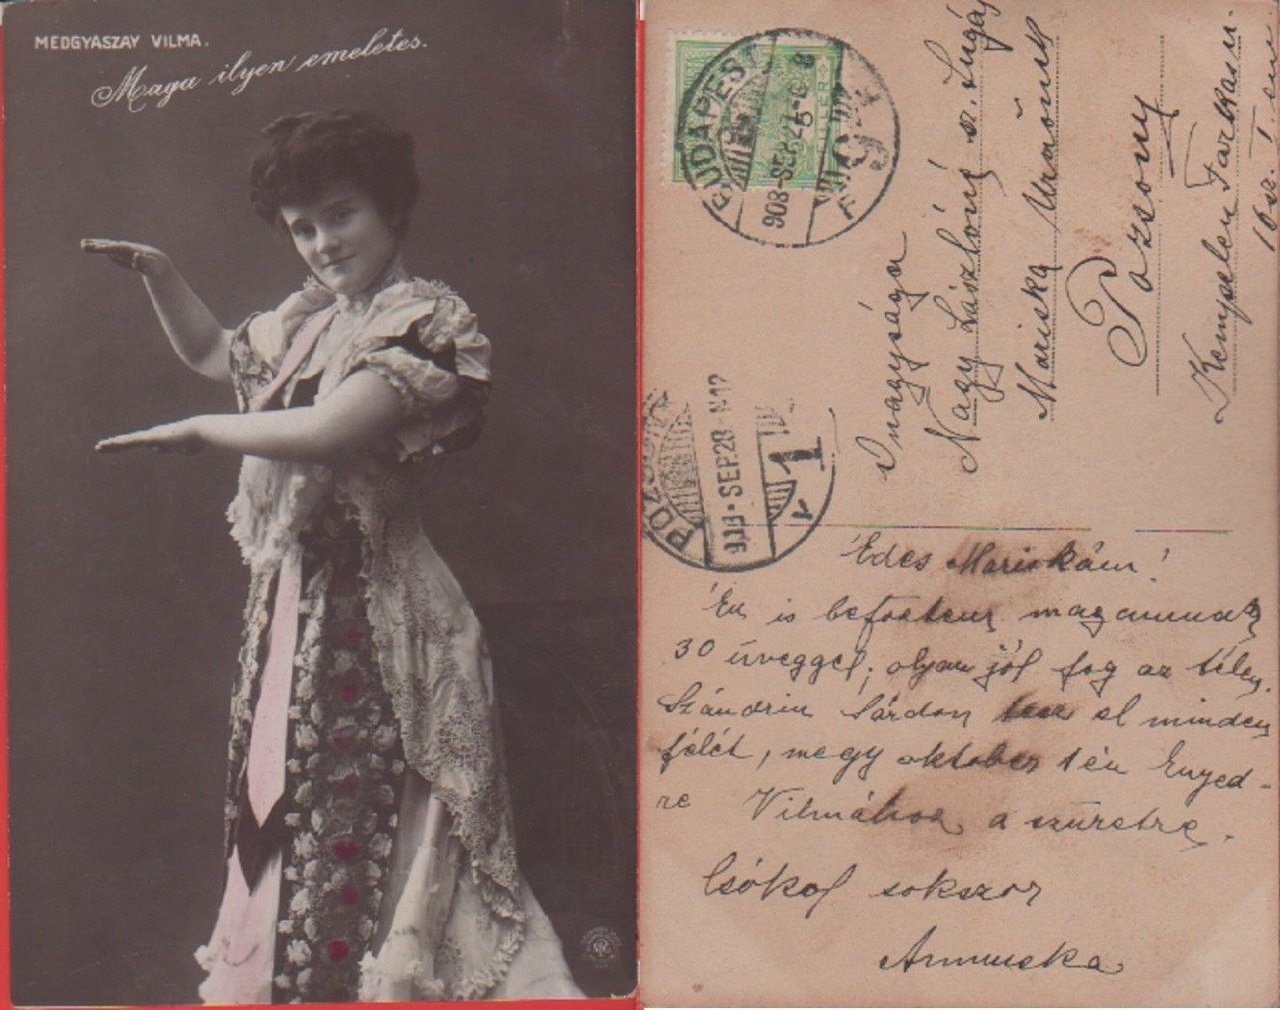 MEDGYASZAY VILMA.
Maga ilyen emeletes.
BUDAPEST
908 SEP. 27
FILLÉR
POZSONY
908 SEP 28 N12
1
Nagysága
Nagy Lászlóné sz. Lugá
Mariska Urnőnek
Pozsony
Kempelen Farkas u.
10 sz. I. em
Édes Mariskám!
Én is befőztem magamnak
30 üveggel, olyan jól fog az télen.
Sándrin Sárdon tesz el minden
félét, megy október 1én Enyed-
re Vilmához a szüretre.
Csókol sokszor
Annuska